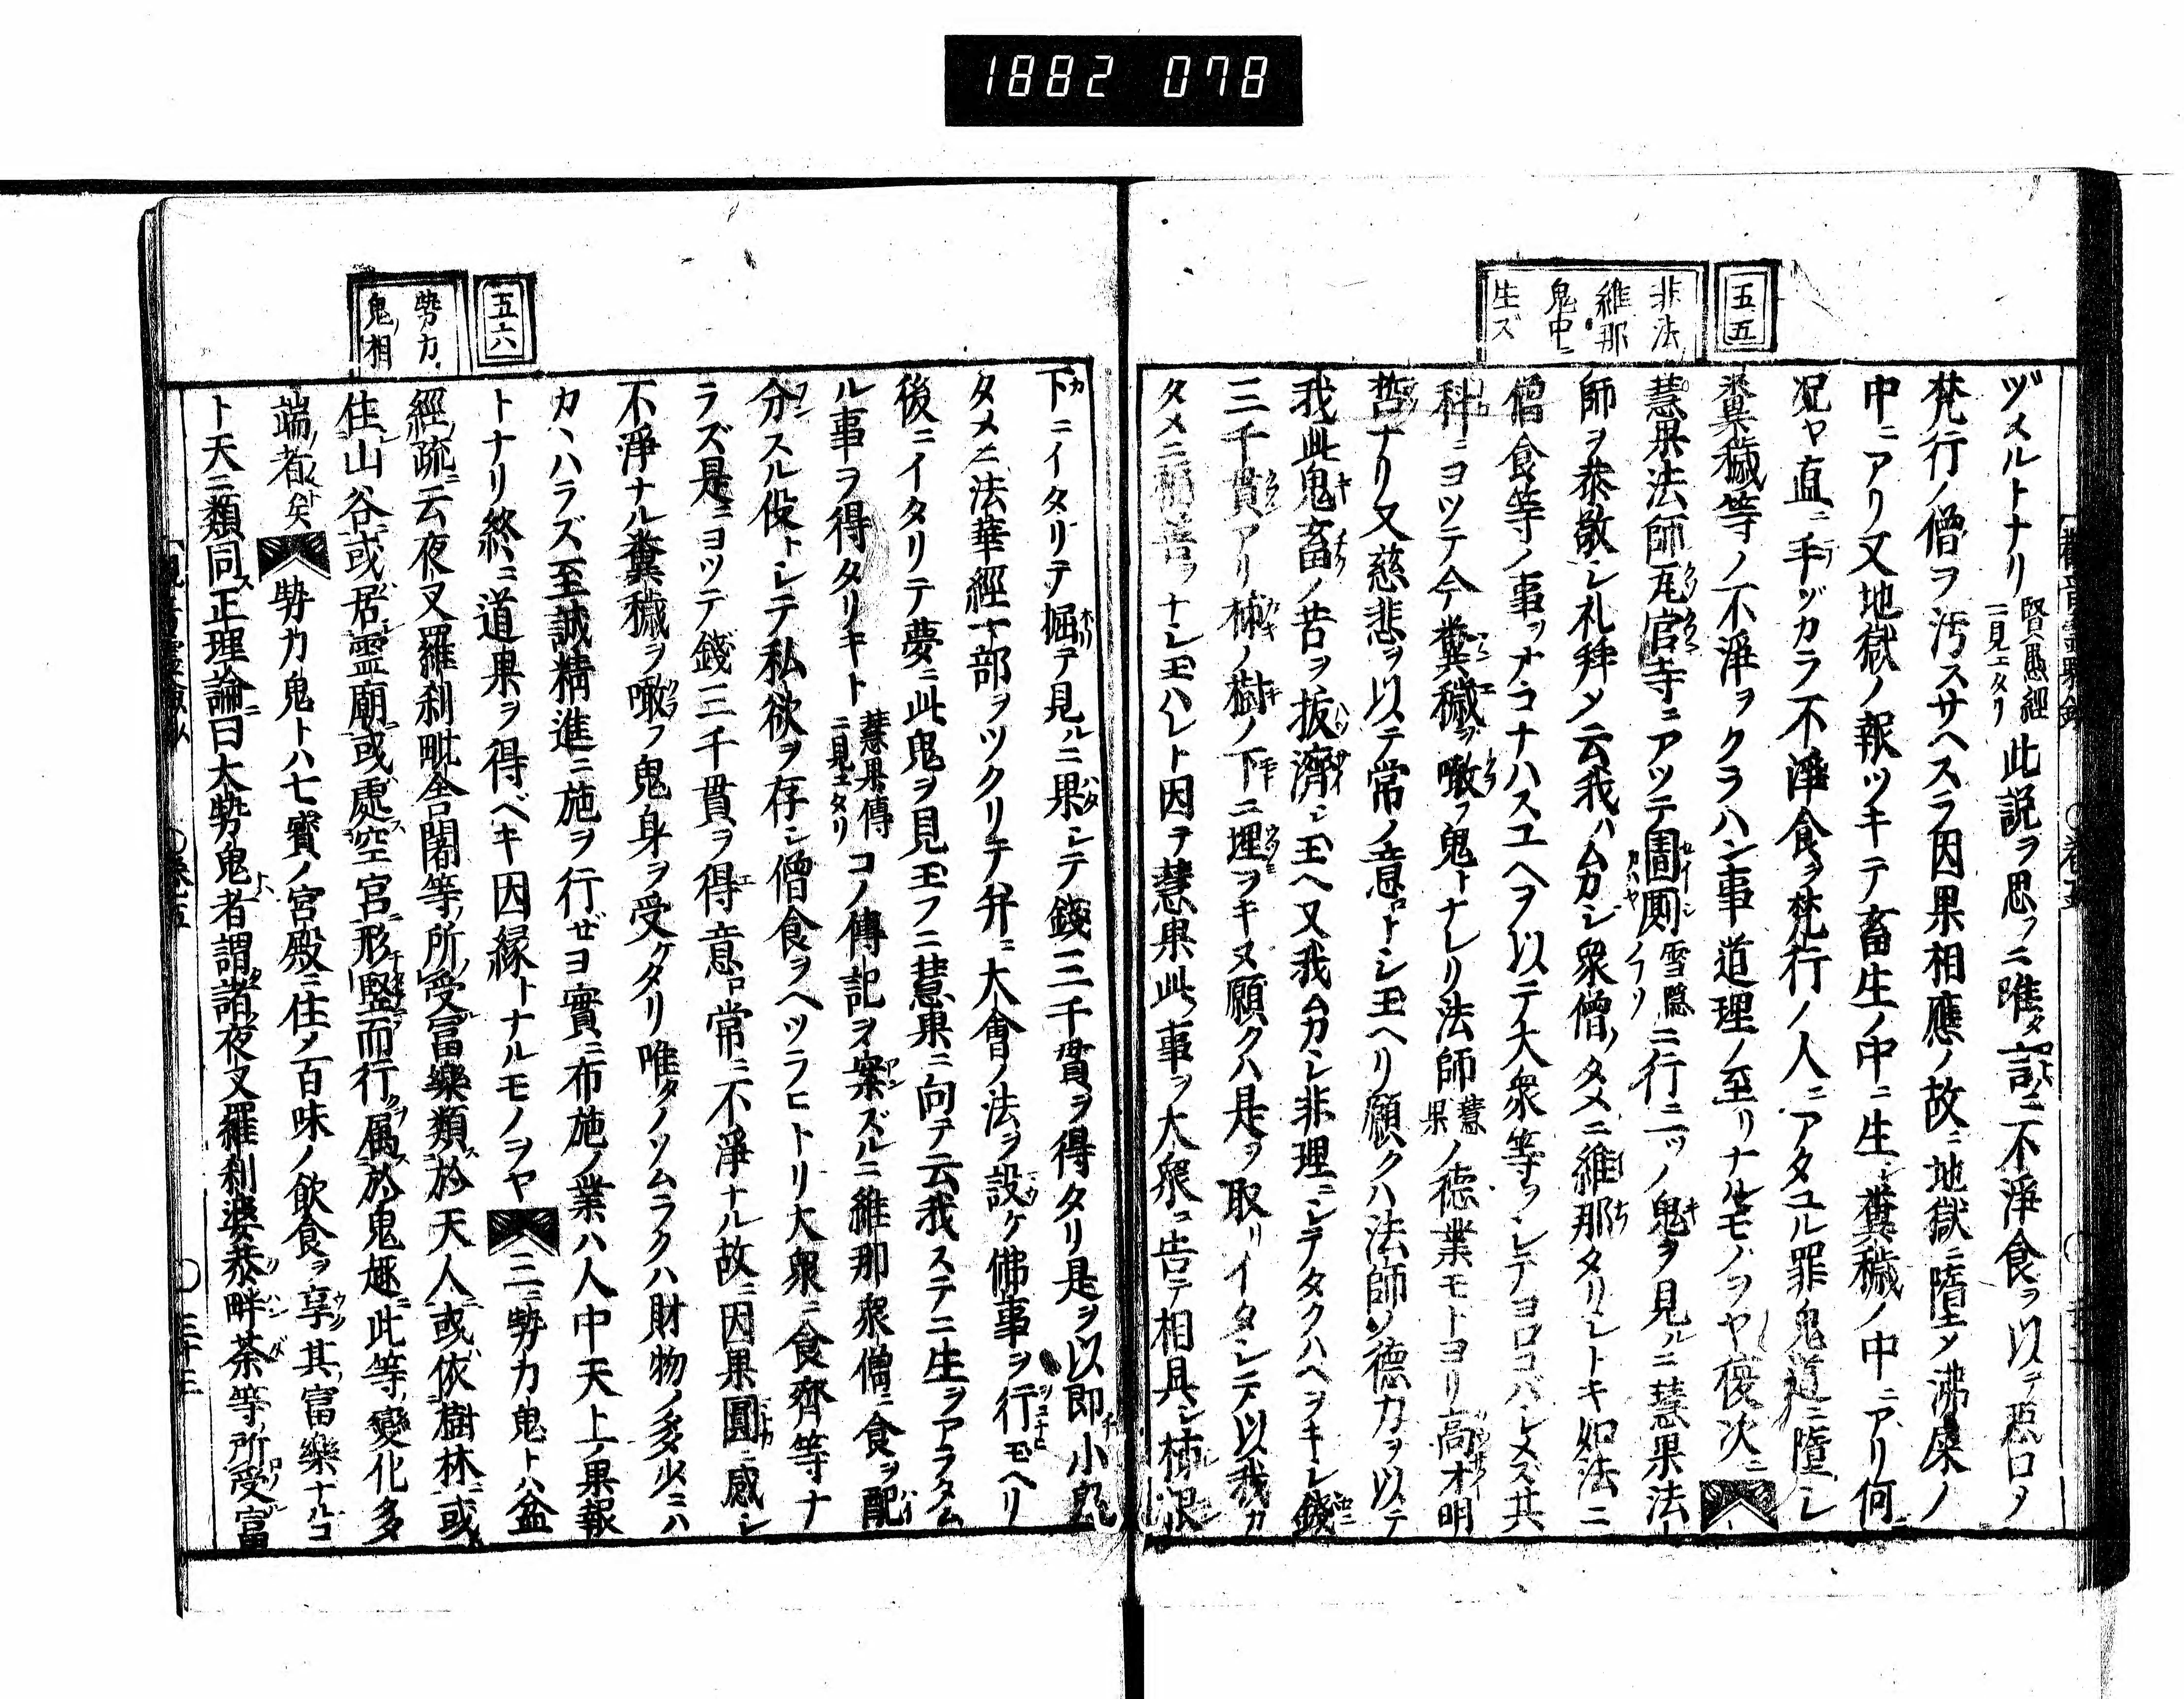 1882 078
五五
非法
維那
鬼中ニ
生ズ
ヅメルトナリ 賢愚經ニ見エタリ 此説ヲ思フニ唯タ言ニ不淨食ヲ以テ惡口ノ
梵行ノ僧ヲ汚スサヘスラ因果相應ノ故ニ地獄ニ墮メ沸屎ノ
中ニアリ又地獄ノ報ツキテ畜生ノ中ニ生レ糞穢ノ中ニアリ何
況ヤ直ニ手ヅカラ不淨食ヲ梵行ノ人ニアタユル罪鬼道ニ墮シ
糞穢等ノ不淨ヲクラハン事道理ノ至リナルモノヲヤ 復次ニ
慧果法師瓦官寺ニアツテ圊厠 雪隠ノコナリ ニ行ニ一ツノ鬼ヲ見ルニ慧果法
師ヲ恭敬シ礼拜メ云我ハムカシ衆僧ノタメニ維那タリシトキ如法ニ
僧食等ノ事ヲナコナハスユヘヲ以テ大衆等ヲシテヨロコバシメス其
科ニヨツテ今糞穢ヲ噉フ鬼トナレリ法師 慧果 ノ德業モトヨリ高才明
哲ナリ又慈悲ヲ以テ常ノ意ロトシ玉ヘリ願クハ法師ノ德力ヲ以テ
我此鬼畜ノ苦ヲ拔濟シ玉ヘ又我ムカシ非理ニシテタクハヘヲキシ錢
三千貫アリ柿ノ樹ノ下ニ埋ヲキヌ願クハ是ヲ取リイタシテ以我カ
タメニ福善ヲナシ玉ハレト因テ慧果此事ヲ大衆ニ告テ相具シ柿根
下ニイタリテ掘テ見ルニ果シテ錢三千貫ヲ得タリ是ヲ以即小鬼
タメニ法華經一部ヲツクリテ弁ニ大會ノ法ヲ設ケ佛事ヲ行モヘリ
後ニイタリテ夢ニ此鬼ヲ見玉フニ慧果ニ向テ云我ステニ生ヲアラタム
ル事ヲ得タリキト 慧果傳ニ見エタリ コノ傳記ヲ案ズルニ維那衆僧ニ食ヲ配
分スル役トシテ私欲ヲ存シ僧食ヲヘツラヒトリ大衆ニ食齊等ナ
ラズ是ニヨツテ錢三千貫ヲ得意ロ常ニ不淨ナル故ニ因果圓ニ感シ
不淨ナル糞穢ヲ噉フ鬼身ヲ受ケタリ唯タノツムラクハ財物ノ多少ニハ
カヽハラズ至誠精進ニ施ヲ行ゼヨ實ニ布施ノ業ハ人中天上ノ果報
トナリ終ニ道果ヲ得ベキ因縁トナルモノヲヤ 三ニ勢力鬼トハ盆
經疏ニ云夜叉羅刹毗舍闍等ノ所受富樂類於天人或依樹林或
住山谷或居霊廟或處空宮形竪而行属於鬼趣此等變化多
端者矣 勢力鬼トハ七寶ノ宮殿ニ住メ百味ノ飲食ヲ享其富樂ナルコ
ト天ニ類同ス正理論ニ曰大勢鬼者謂諸夜叉羅刹婆恭畔荼等所受富
五六
勢力
鬼ノ相